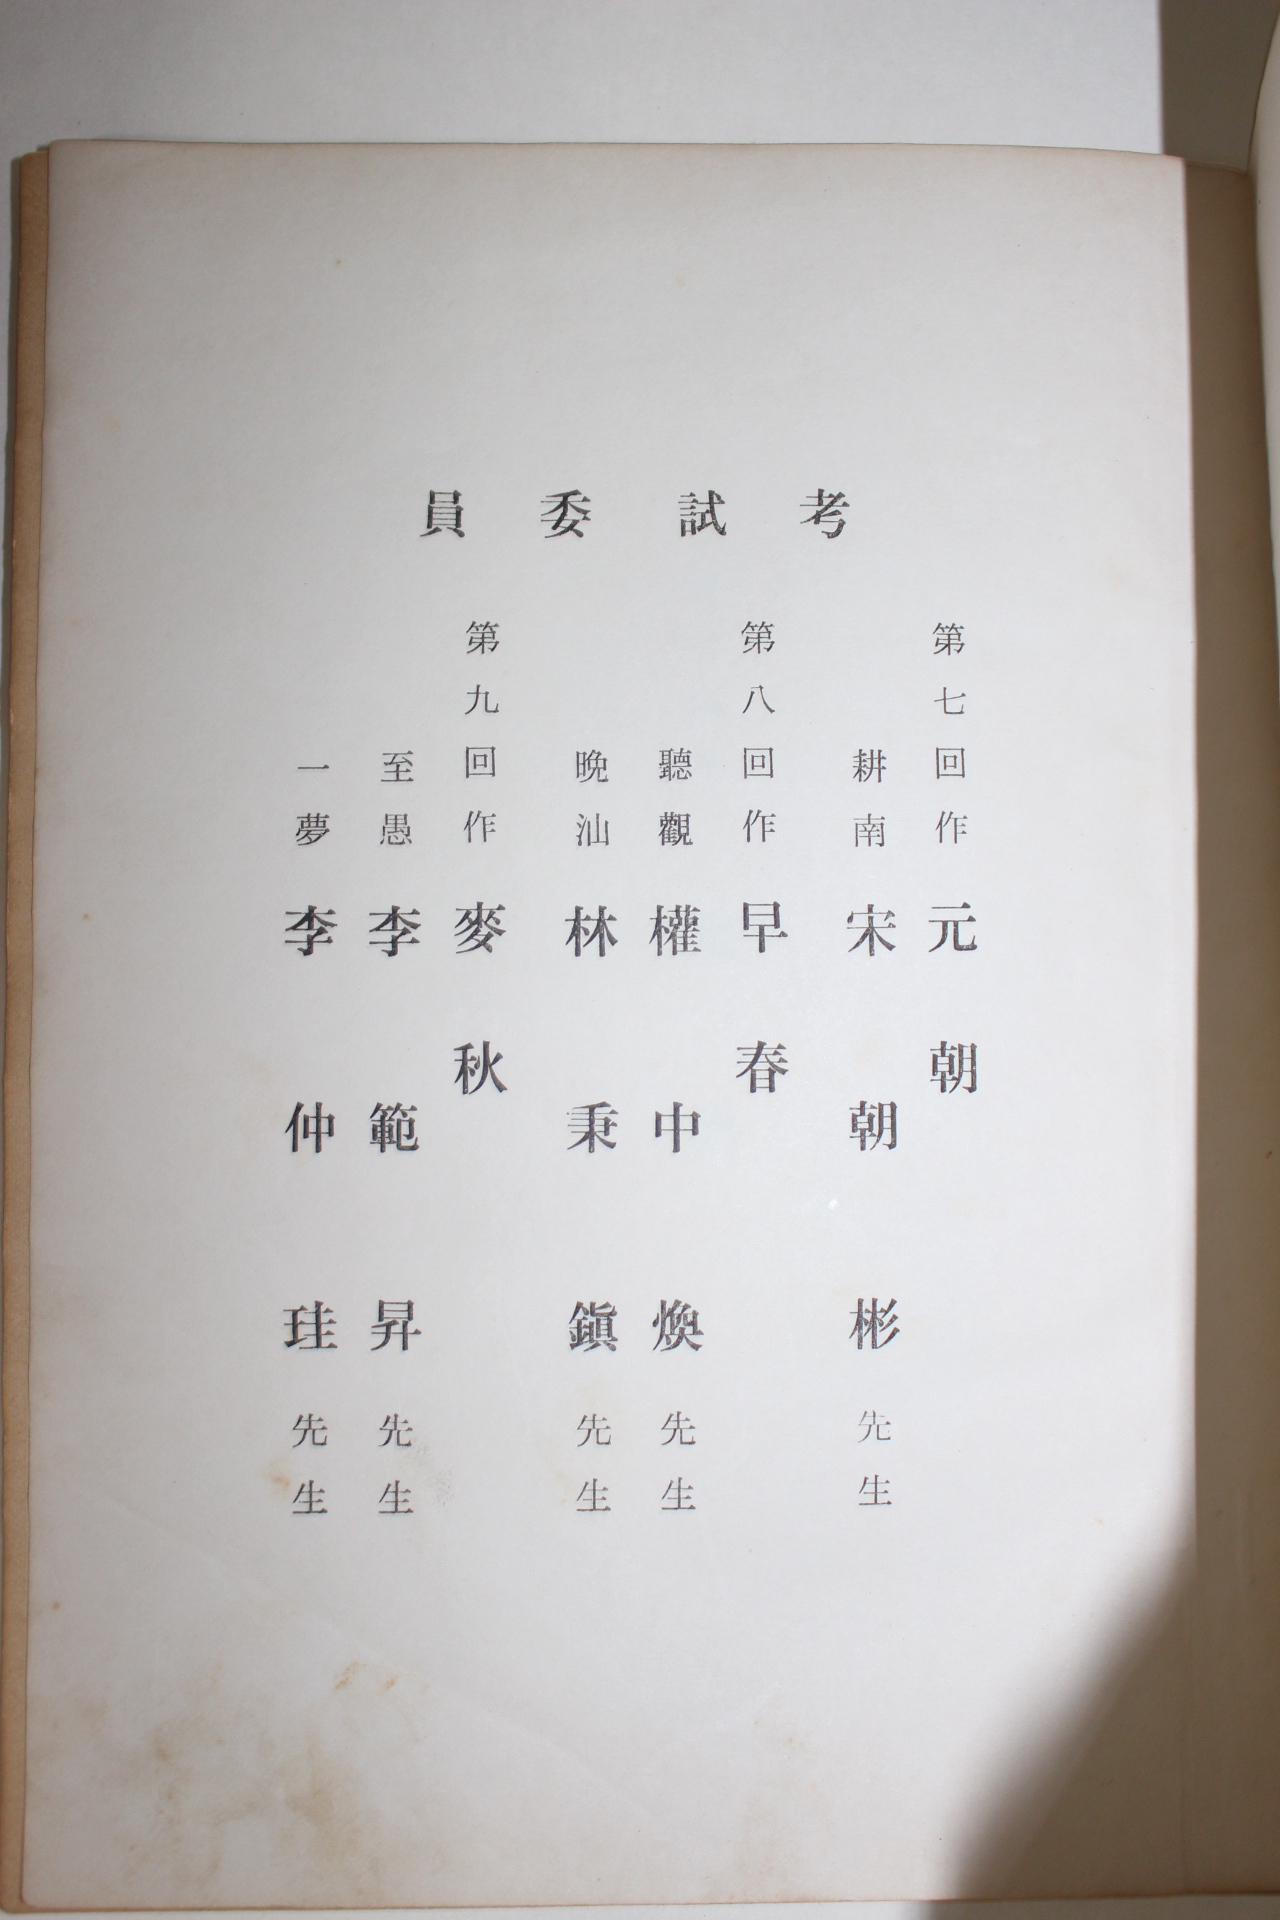 考試委員
第七回作 元朝
耕南 宋朝彬先生
第八回作 早春
聽觀 權中煥先生
晩汕 林秉鎭先生
第九回作 麥秋
至愚 李範昇先生
一夢 李仲珪先生